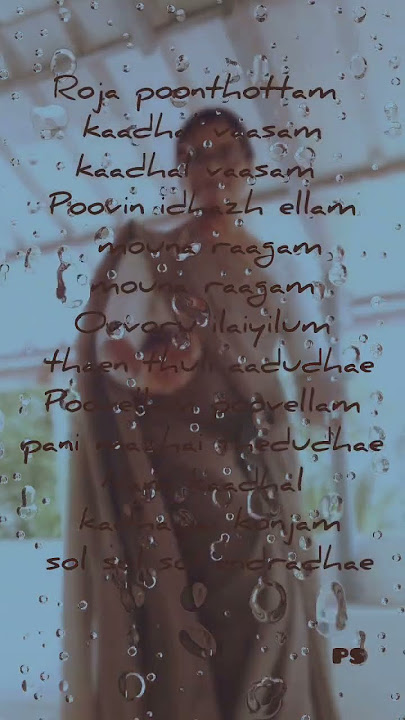 Roja poonthottam
kaadhal vaasam
kaadhal vaasam
Poovin idhazh ellam
mouna raagam
mouna raagam
Ovvoru ilaiyilum
thaen thuli aadudhae
poovellam
pani mazhai thedudhae
kaadhal
konjam
sol sol
PS